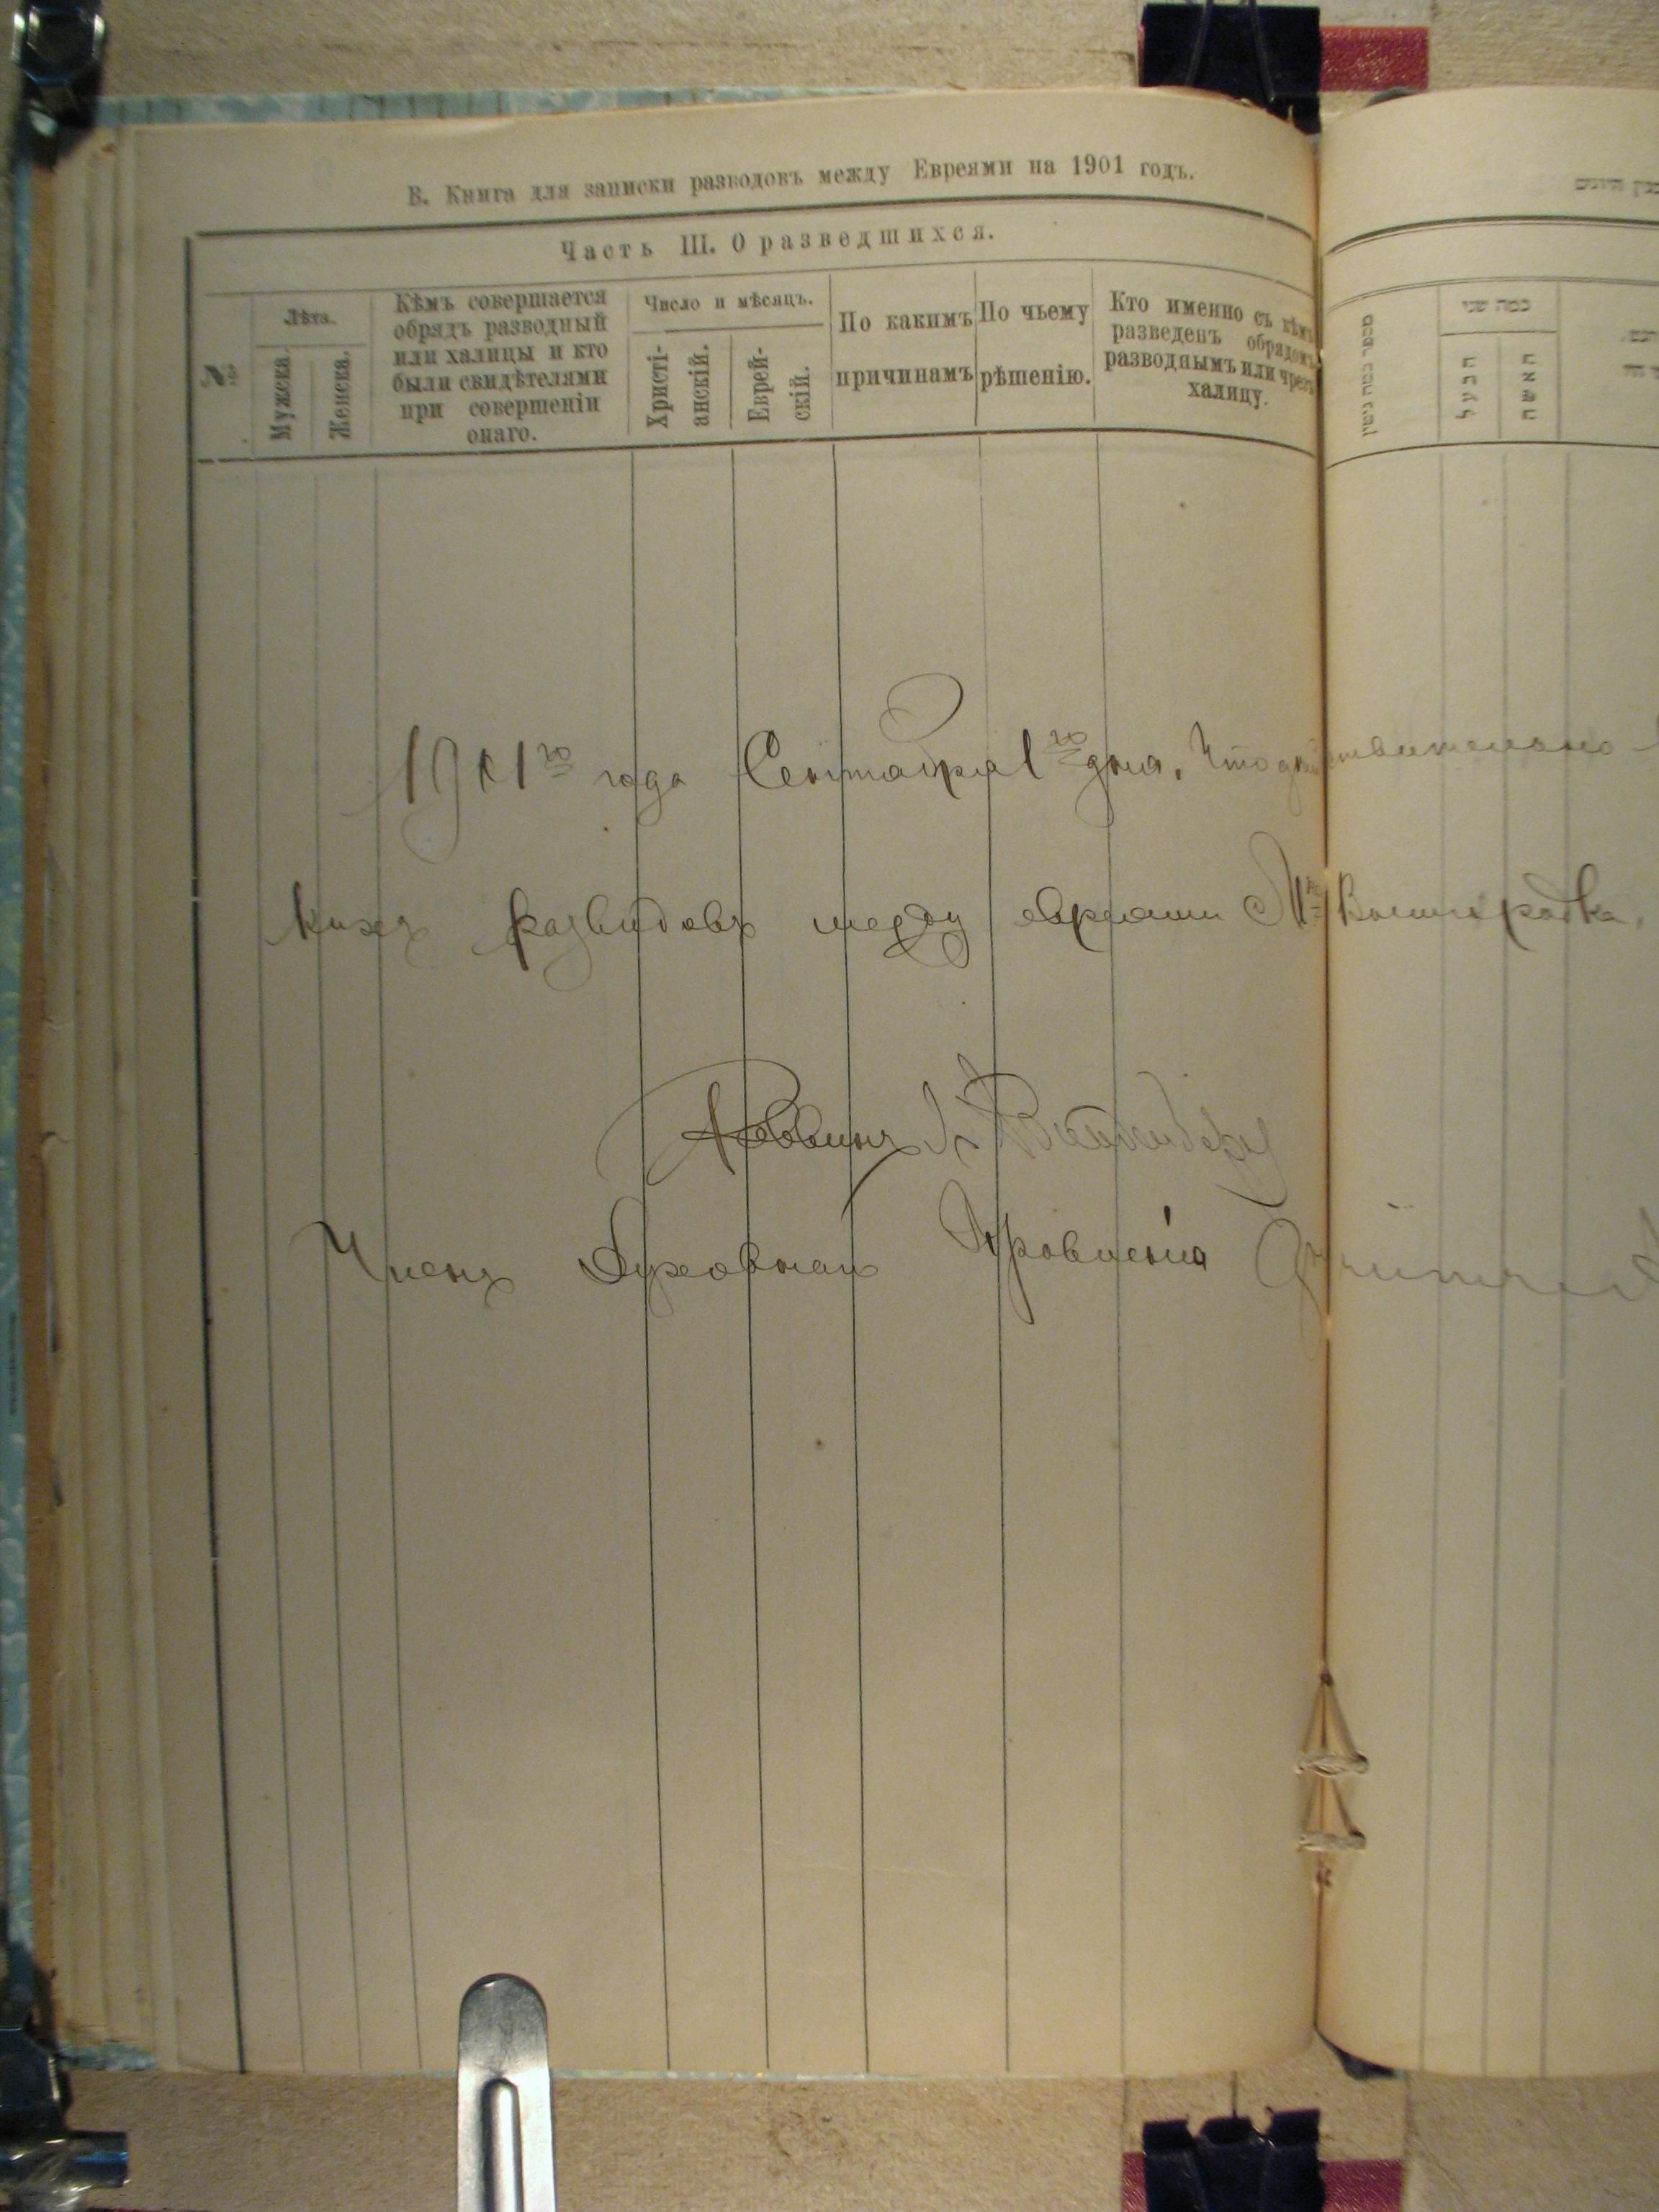 В. Книга для записки разводовъ между Евреями на 1901 годъ.
Часть III. О разведшихся.
№
Лѣта.
Мужска.
Женска.
Кѣмъ совершается
обрядъ разводный
или халицы и кто
были свидѣтелями
при совершеніи
онаго.
Число и мѣсяцъ.
Христі-
анскій.
Еврей-
скій.
По какимъ
причинамъ
По чьему
рѣшенію.
Кто именно съ кѣмъ
разведенъ обрядомъ
разводнымъ или чрезъ
халицу.
כמה שני
הבעל
האשה
1901го года Сентября 1го дня, Что действительно
между евреями М-ка Вышгородка,
Раввинъ
Членъ Духовнаго Правленія